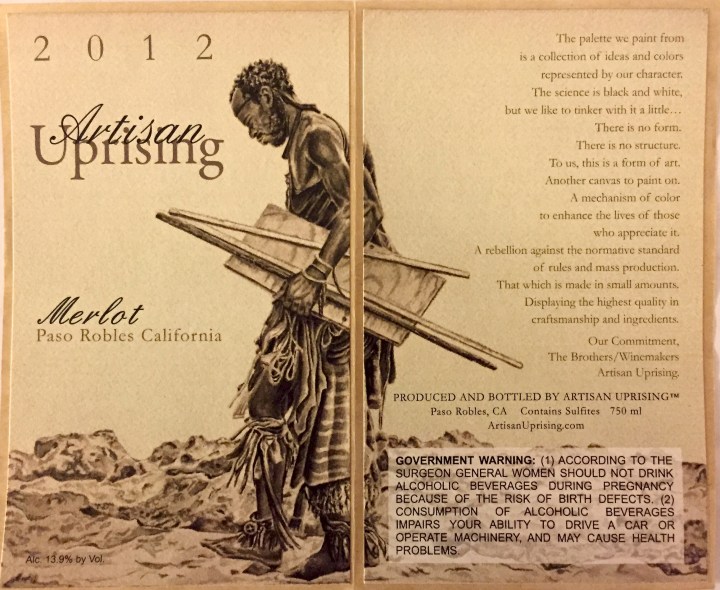 2012
Artisan
Uprising
Merlot
Paso Robles California
Alc. 13.9% by Vol.
The palette we paint from
is a collection of ideas and colors
represented by our character.
The science is black and white,
but we like to tinker with it a little…
There is no form.
There is no structure.
To us, this is a form of art.
Another canvas to paint on.
A mechanism of color
to enhance the lives of those
who appreciate it.
A rebellion against the normative standard
of rules and mass production.
That which is made in small amounts.
Displaying the highest quality in
craftsmanship and ingredients.
Our Commitment,
The Brothers/Winemakers
Artisan Uprising.
PRODUCED AND BOTTLED BY ARTISAN UPRISING™
Paso Robles, CA Contains Sulfites 750 ml
ArtisanUprising.com
GOVERNMENT WARNING: (1) ACCORDING TO THE
SURGEON GENERAL WOMEN SHOULD NOT DRINK
ALCOHOLIC BEVERAGES DURING PREGNANCY
BECAUSE OF THE RISK OF BIRTH DEFECTS. (2)
CONSUMPTION OF ALCOHOLIC BEVERAGES
IMPAIRS YOUR ABILITY TO DRIVE A CAR OR
OPERATE MACHINERY, AND MAY CAUSE HEALTH
PROBLEMS.